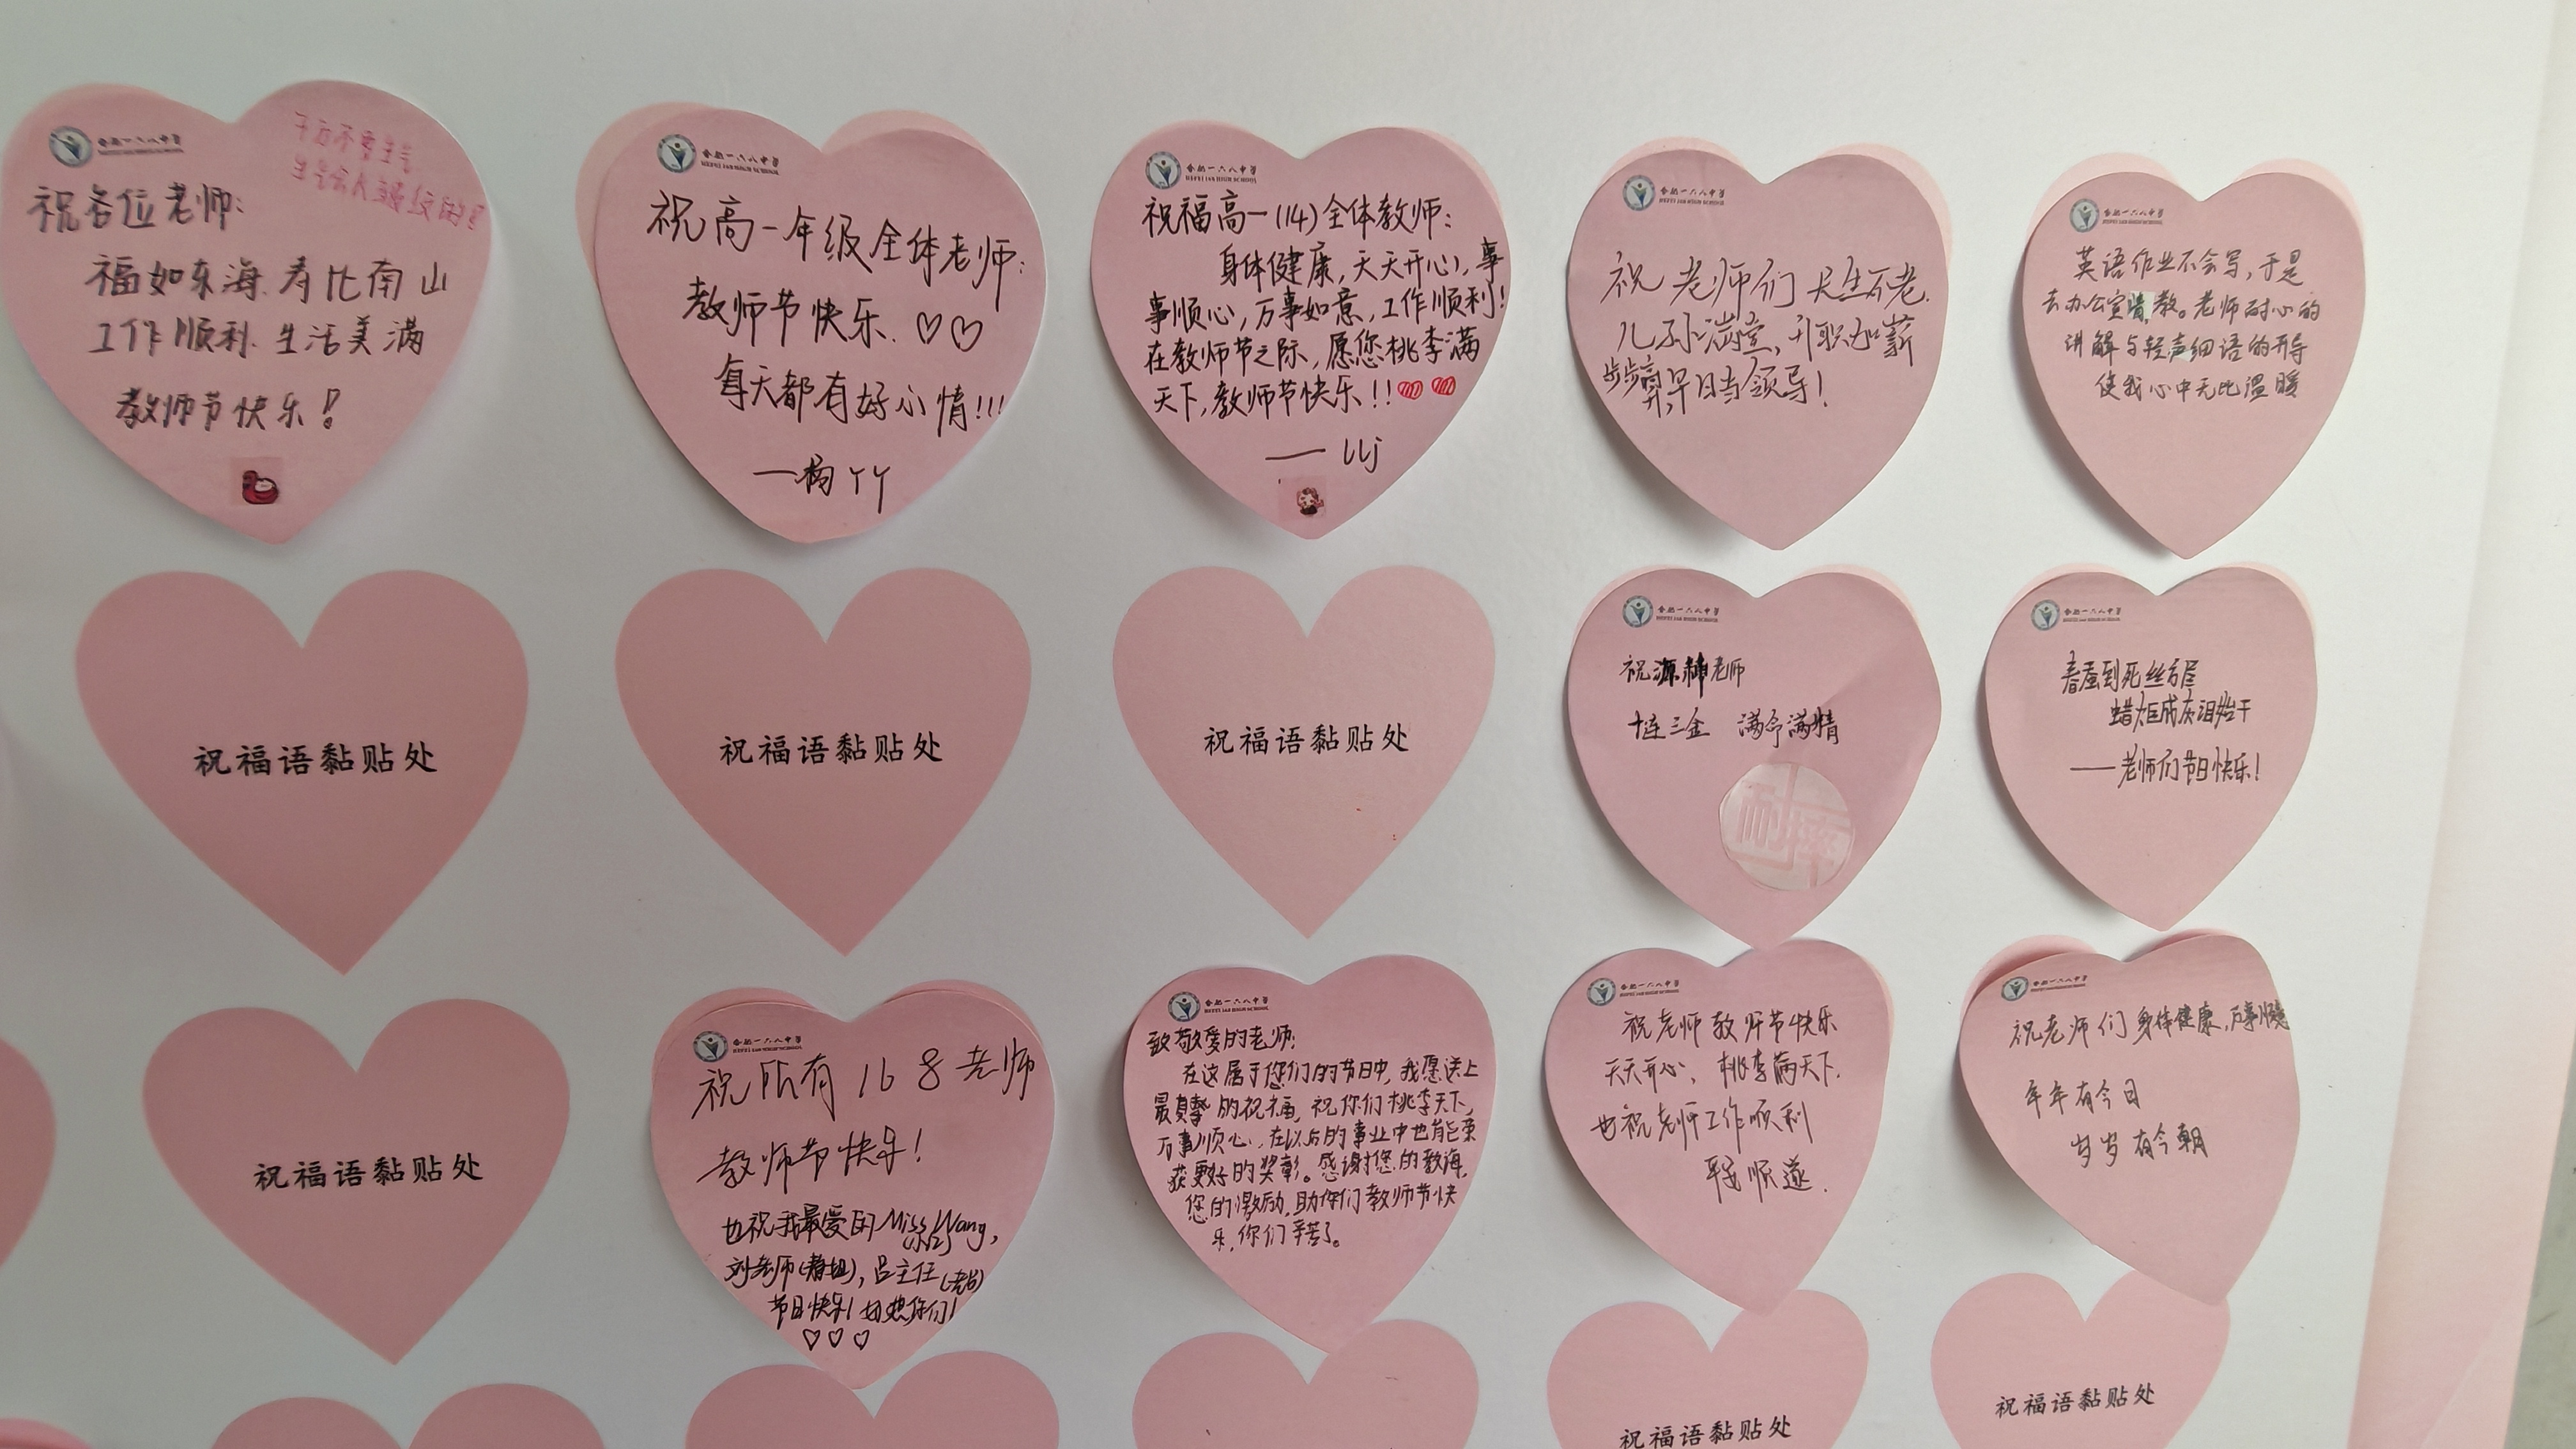 合肥一六八中学
千万不要生气
祝各位老师:
福如东海 寿比南山
工作顺利 生活美满
教师节快乐!
合肥一六八中学
HEFEI 168 HIGH SCHOOL
祝高一年级全体老师:
教师节快乐.♡♡
每天都有好心情!!!
—杨丫丫
合肥一六八中学
HEFEI 168 HIGH SCHOOL
祝福高一(14)全体教师:
身体健康,天天开心,事
事顺心,万事如意,工作顺利!
在教师节之际,愿您桃李满
天下,教师节快乐!!
—— llj
合肥一六八中学
HEFEI 168 HIGH SCHOOL
祝老师们长生不老.
儿孙满堂,升职加薪
步步高升,早日当领导!
合肥一六八中学
HEFEI 168 HIGH SCHOOL
英语作业不会写,于是
去办公室请教。老师耐心的
讲解与轻声细语的开导
使我心中无比温暖
祝福语黏贴处
祝福语黏贴处
祝福语黏贴处
合肥一六八中学
HEFEI 168 HIGH SCHOOL
祝源神老师
十连三金 满命满精
耐摔
合肥一六八中学
HEFEI 168 HIGH SCHOOL
春蚕到死丝方尽
蜡炬成灰泪始干
——老师们节日快乐!
祝福语黏贴处
合肥一六八中学
HEFEI 168 HIGH SCHOOL
祝所有168老师
教师节快乐!
也祝我最爱的Miss Wang,
刘老师(春姐),吕主任(老吕)
节日快乐!想你们!
♡♡♡
合肥一六八中学
HEFEI 168 HIGH SCHOOL
致敬爱的老师:
在这属于您们的节日中,我愿送上
最真挚的祝福,祝你们桃李天下,
万事顺心,在以后的事业中也能荣
获更好的奖彰。感谢您的教诲,
您的激励,助你们教师节快
乐,你们辛苦了。
合肥一六八中学
HEFEI 168 HIGH SCHOOL
祝老师教师节快乐
天天开心、桃李满天下.
也祝老师工作顺利
平安顺遂.
合肥一六八中学
祝老师们身体健康,万事顺意
年年有今日
岁岁有今朝
祝福语黏贴处
祝福语黏贴处